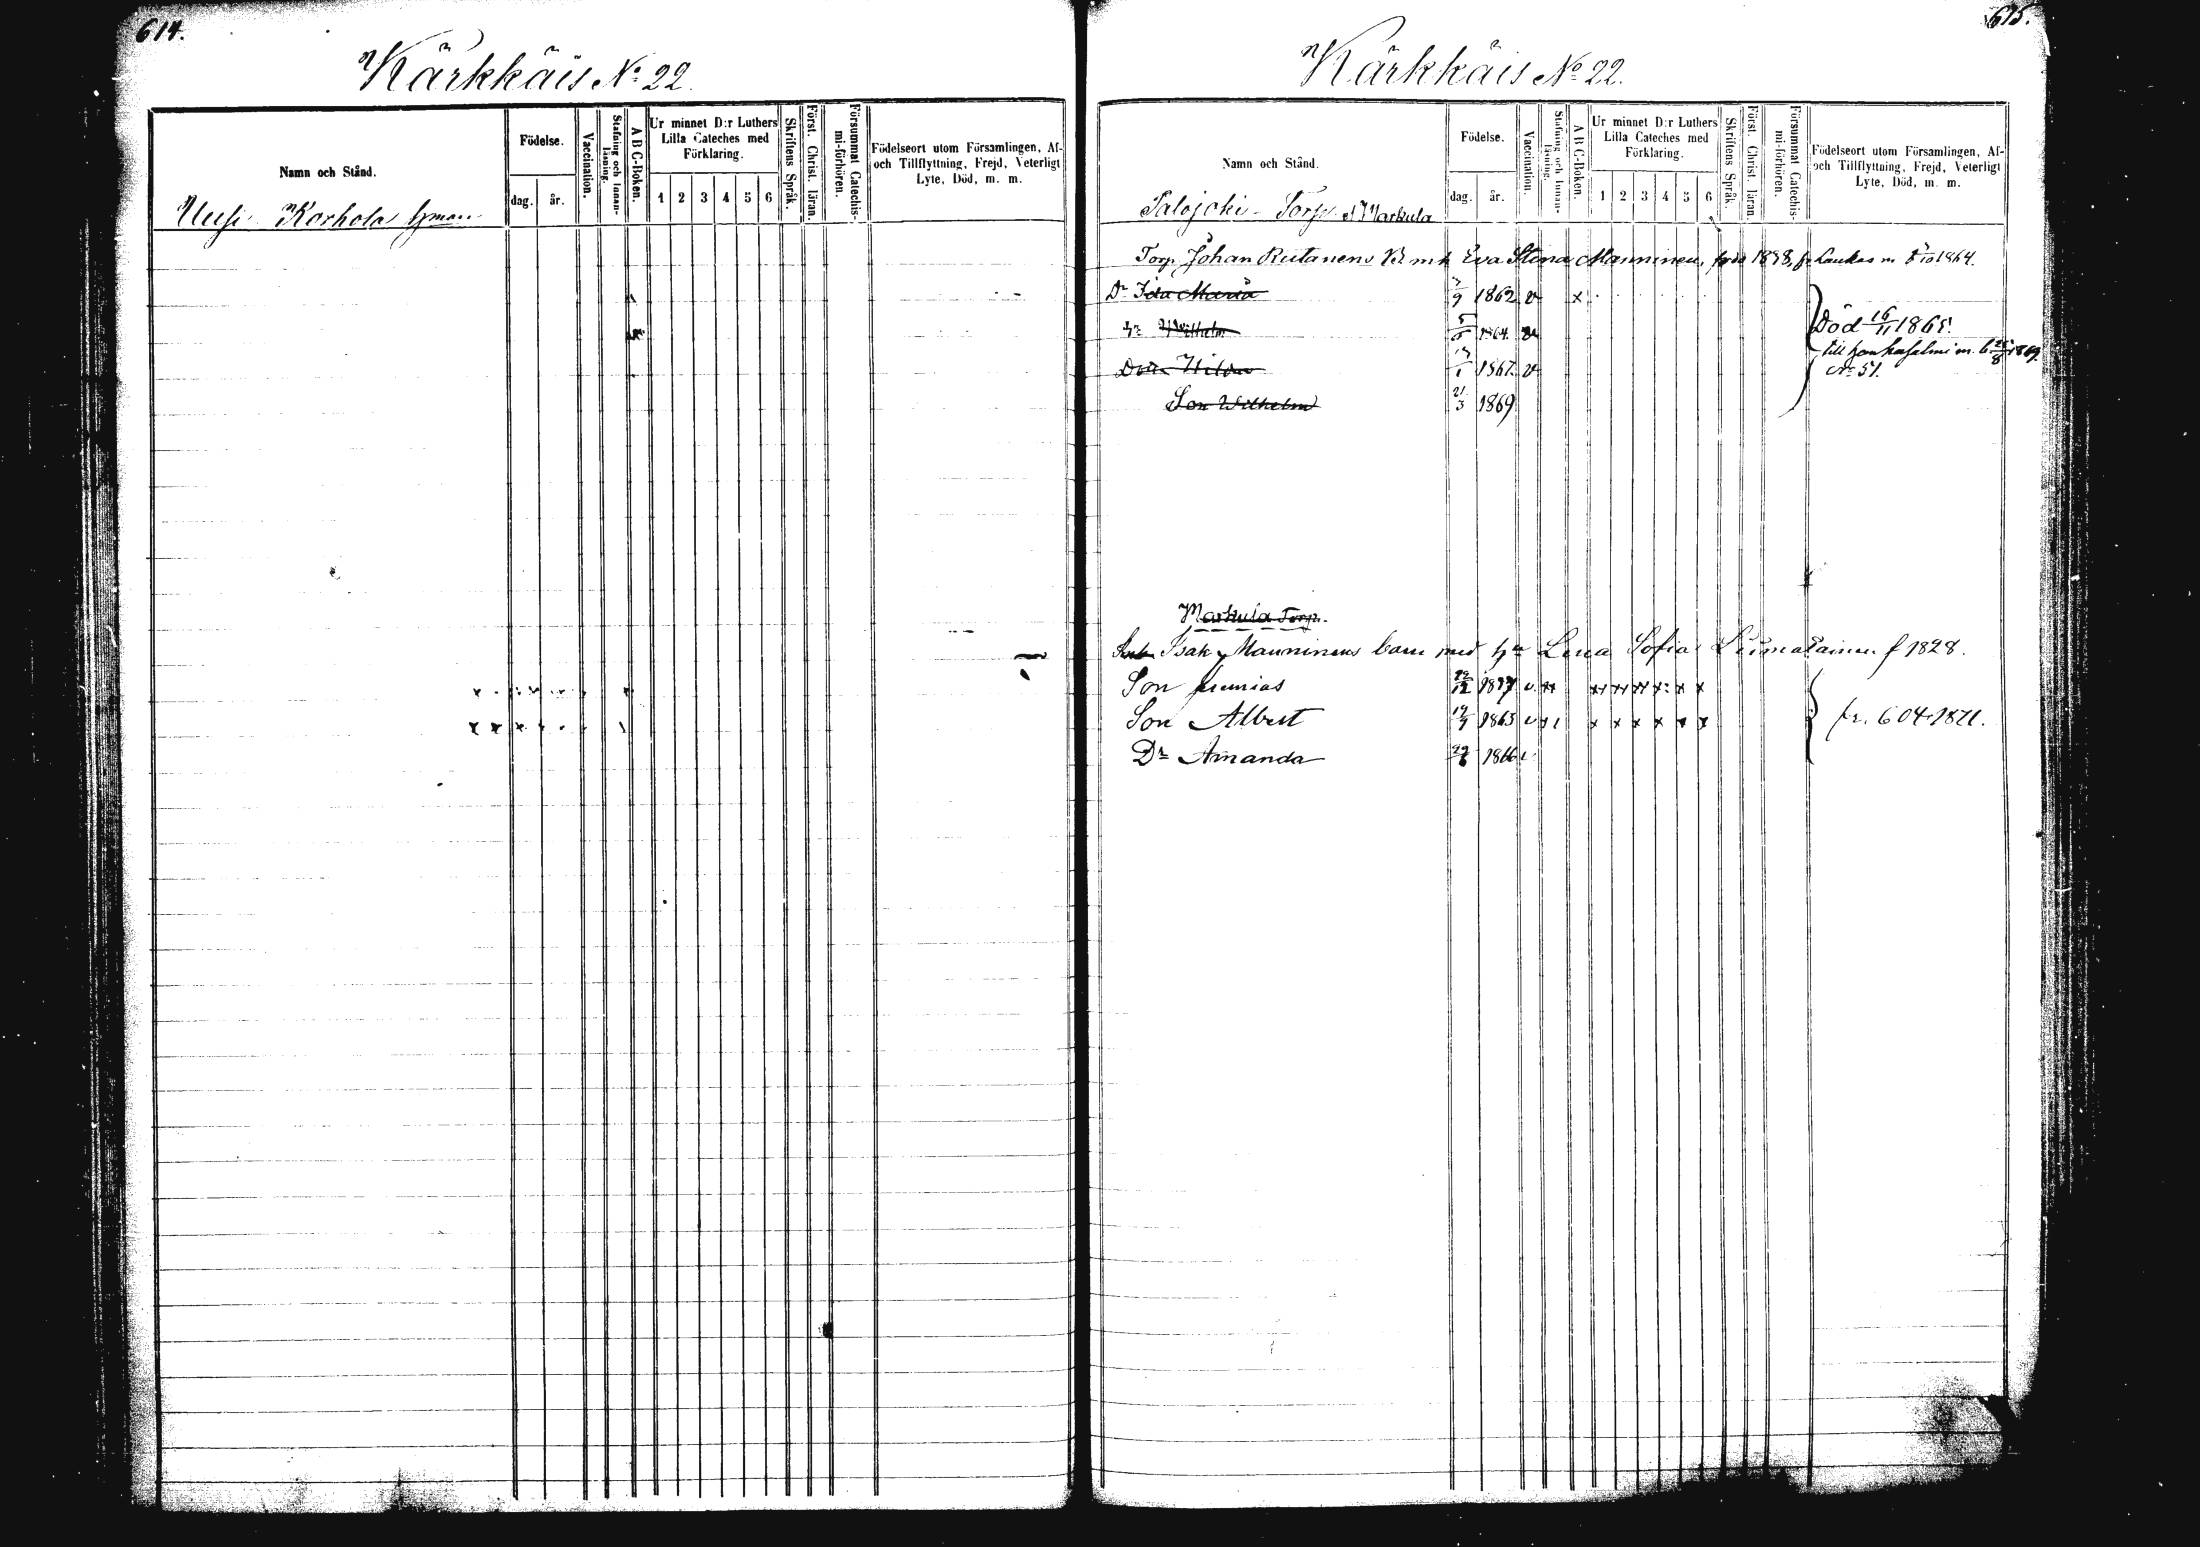 614.
Kärkkäis No 22.
Namn och Stånd.
Födelse.
dag.
år.
Vaccination.
Stafning och Innan-
läsning.
A B C-Boken.
Ur minnet D:r Luthers
Lilla Cateches med
Förklaring.
1 2 3 4 5 6
Skriftens Språk.
Först. Christ. läran.
Försummat Catechis-
mi-förhören.
Födelseort utom Församlingen, Af-
och Tillflyttning, Frejd, Veterligt
Lyte, Död, m. m.
Uusi Korhola
615.
Kärkkäis No 22.
Namn och Stånd.
Födelse.
dag.
år.
Vaccination.
Stafning och Innan-
läsning.
A B C-Boken.
Ur minnet D:r Luthers
Lilla Cateches med
Förklaring.
1 2 3 4 5 6
Skriftens Språk.
Först. Christ. läran.
Försummat Catechis-
mi-förhören.
Födelseort utom Församlingen, Af-
och Tillflyttning, Frejd, Veterligt
Lyte, Död, m. m.
Salojoki Torp Markula
Torp. Johan Rutanens Eva Stina Manninen, 1838, Laukas 1864.
Dr Ida Maria 1862 v x
Wilhelm 1864 v Död 16/11 1868.
1867 v till 1869.
No 51.
Son Wilhelm 21/3 1869
Markula Torp.
Isak Manninens barn med Lena Sofia f 1828.
Son v
Son Albert 1863 v x x x x x x fr. 604 1871.
Dr Amanda 1866 v